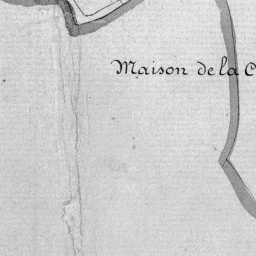 Maison de la C